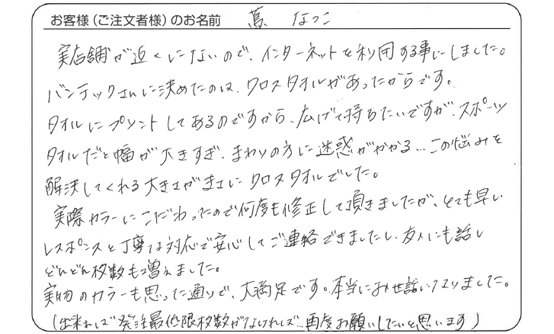 お客様（ご注文者様）のお名前 蔦 なつこ
実店舗が近くにないので、インターネットを利用する事にしました。
バンテックさんに決めたのは、クロスタオルがあったからです。
タオルにプリントしてあるのですから、広げて持ちたいですが、スポーツ
タオルだと幅が大きすぎ、まわりの方に迷惑がかかる…この悩みを
解決してくれる大きさがまさにクロスタオルでした。
実際カラーにこだわったので何度も修正して頂きましたが、とても早い
レスポンスと丁寧な対応で安心してご連絡できましたし、友人にも話し
どんどん枚数も増えました。
実物のカラーも思った通りで、大満足です。本当にお世話になりました。
（出来れば発注最低限枚数がなければ…再度お願いしたいと思います）